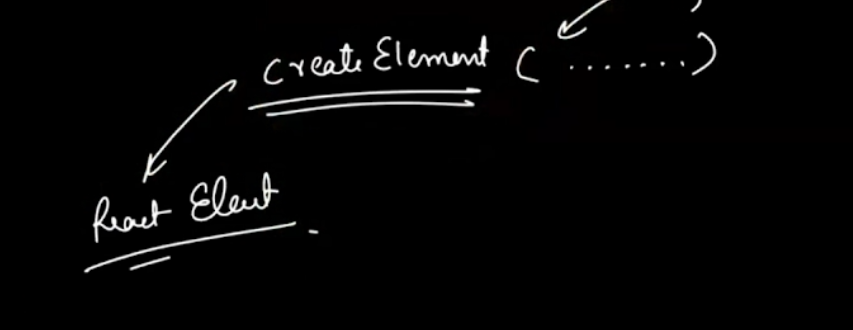 Create Element ( ....... )
React Elent